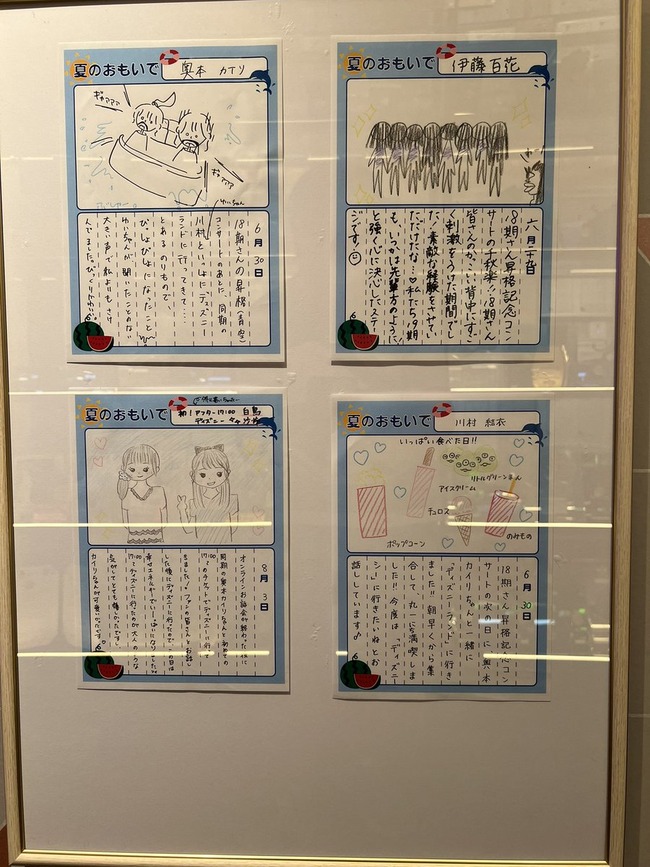 夏のおもいで
奥本 カイリ
ギャアアア
ギャアアア
ゆいちゃん
6月30日
18期さんの昇格(青空)
コンサートのあとに、同期の
川村といっしょに、ディズニー
ランドに行ってきて…
とあるのりもので、
びっしょびしょになったこと〜
ゆいちゃんが聞いたことのない
大きい声で私よりもさけ
んでました。
夏のおもいで
伊藤百花
六月三十日
18期さん昇格記念コン
サートの千秋楽!18期さん
皆さんのかっこいい背中にすご
く刺激をうけた期間でし
た!素敵な経験をさせてい
ただけたな…♡私たち19期
も、いつかは先輩方のように!
と強く心に決心したステー
ジです!☺
夏のおもいで
初!アフター17:00
ディズニー
白鳥沙怜
8月3日
オンラインお話会が終わった後に
同期の奥本カイリちゃんと初めての
17:00〜のチケットでディズニーに行って
きました!ファンの皆さんとお話し
した後にディズニーに行ったので、この日は
幸せエネルギーでいーっぱいになりました♡
17:00〜ディズニーに行ったのが大人のような
感がしてとても嬉しかったです。
カイリちゃんが可愛かったです!
夏のおもいで
川村 結衣
いっぱい食べた日!!
リトルグリーンまん
アイスクリーム
チュロス
のみもの
ポップコーン
6月30日
18期さん昇格記念コン
サートの次の日に、奥本
カイリちゃんと一緒に
「ディズニーランド」に行き
ました!!朝早くから集
合して、丸一日を満喫しま
した!!今度は、「ディズニー
シー」に行きたいねとお
話ししています♪